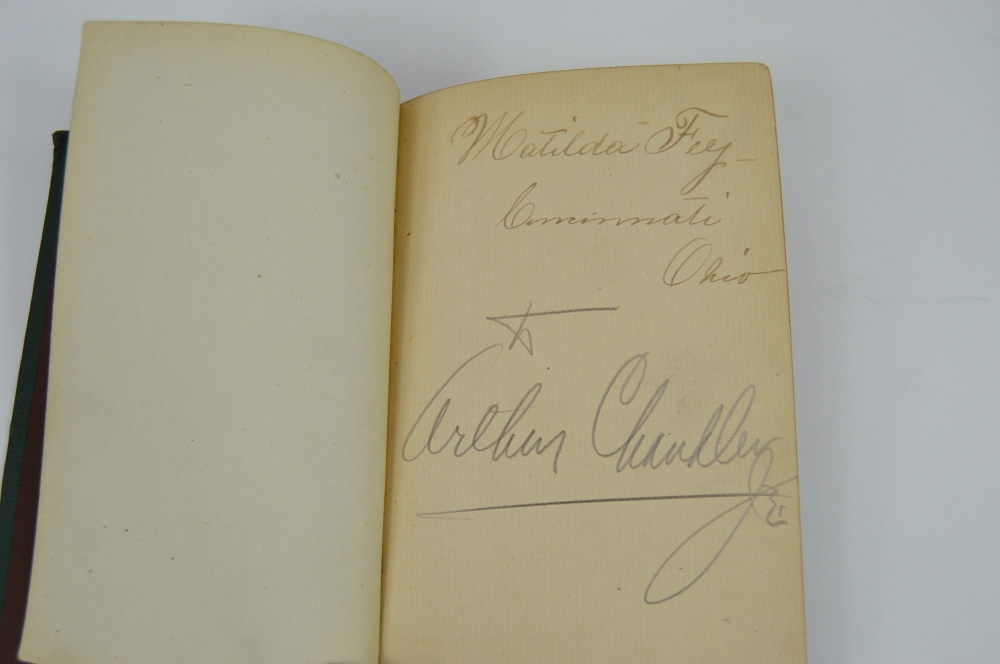 Matilda Fey
Cincinnati
Ohio
to
Arthur Chandler
Jr